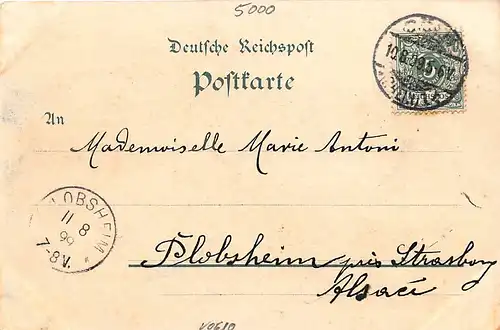 5000
Deutsche Reichspost
Postkarte
An
Mademoiselle Marie Antoni
PLOBSHEIM
11 8
99
7-8V.
Plobsheim près Strasbourg
Alsace